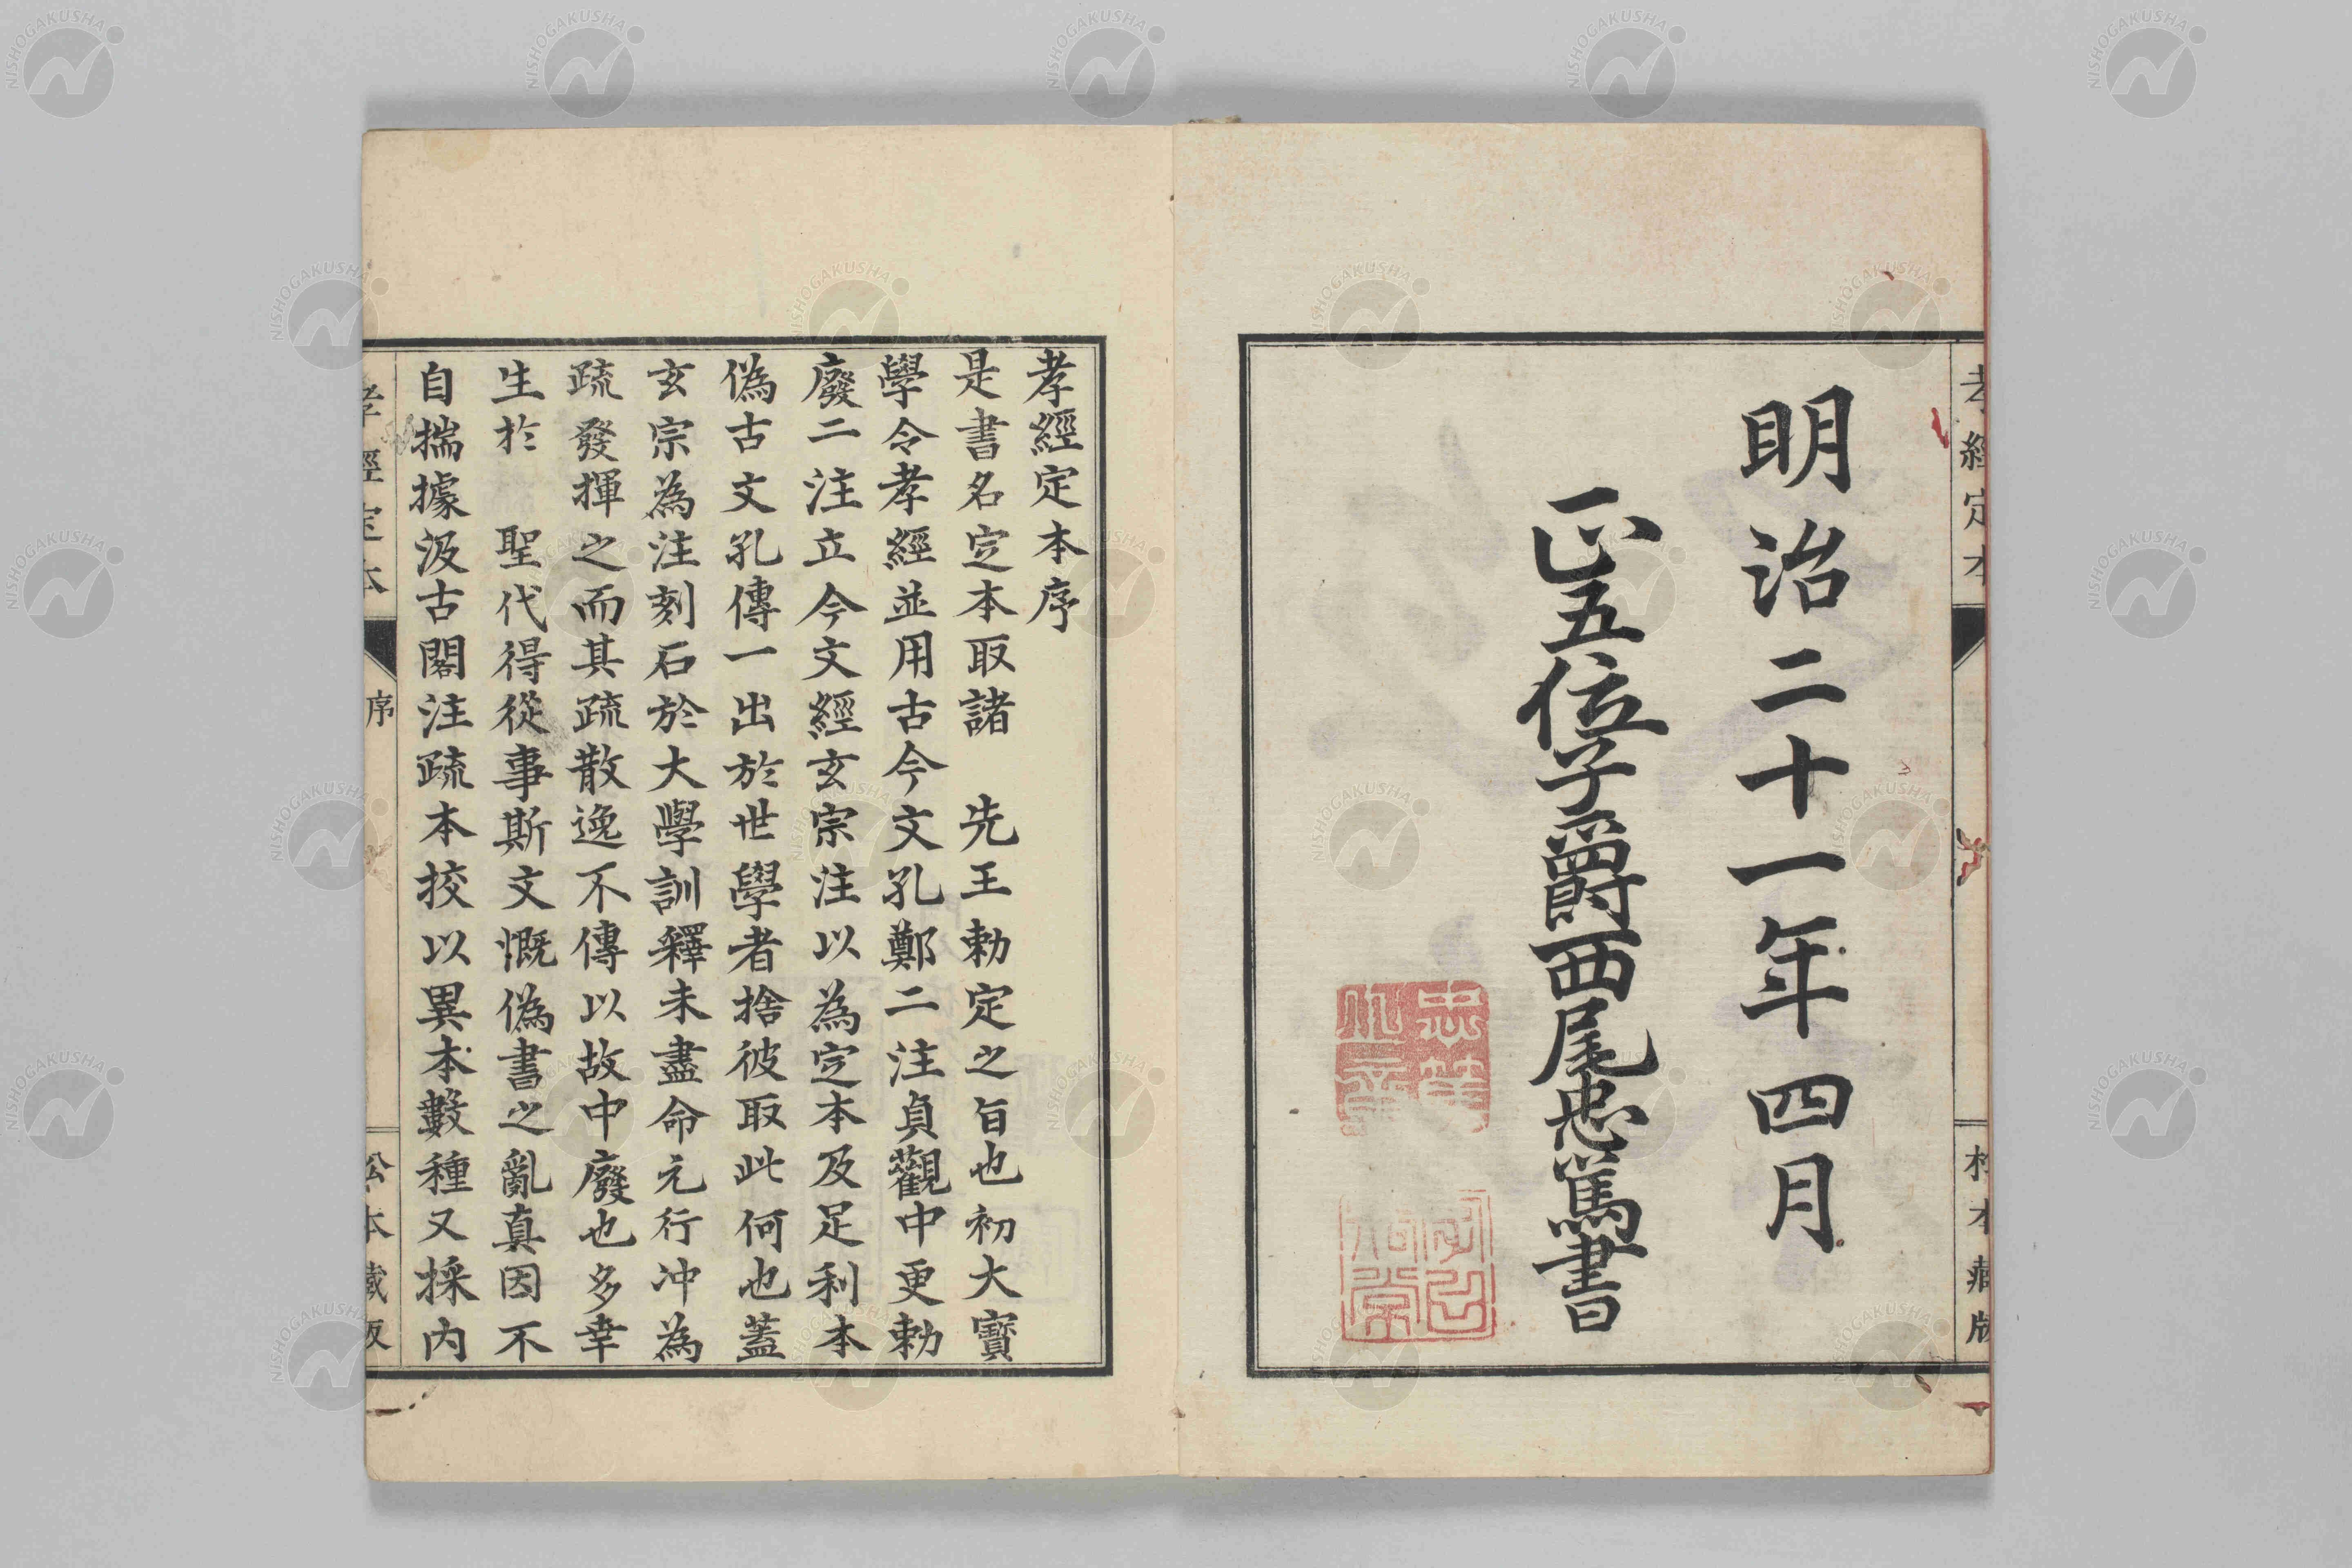 孝經定本
松本藏版
明治二十一年四月
正五位子爵西尾忠篤書
孝經定本序
是書名定本取諸　先王勅定之旨也初大寶
學令孝經並用古今文孔鄭二注貞觀中更勅
廢二注立今文經玄宗注以為定本及足利本
偽古文孔傳一出於世學者捨彼取此何也蓋
玄宗為注刻石於大學訓釋未盡命元行冲為
疏發揮之而其疏散逸不傳以故中廢也多幸
生於　聖代得從事斯文慨偽書之亂真因不
自揣據汲古閣注疏本挍以異本數種又採内
孝經定本
序
松本藏版
NISHOGAKUSHA